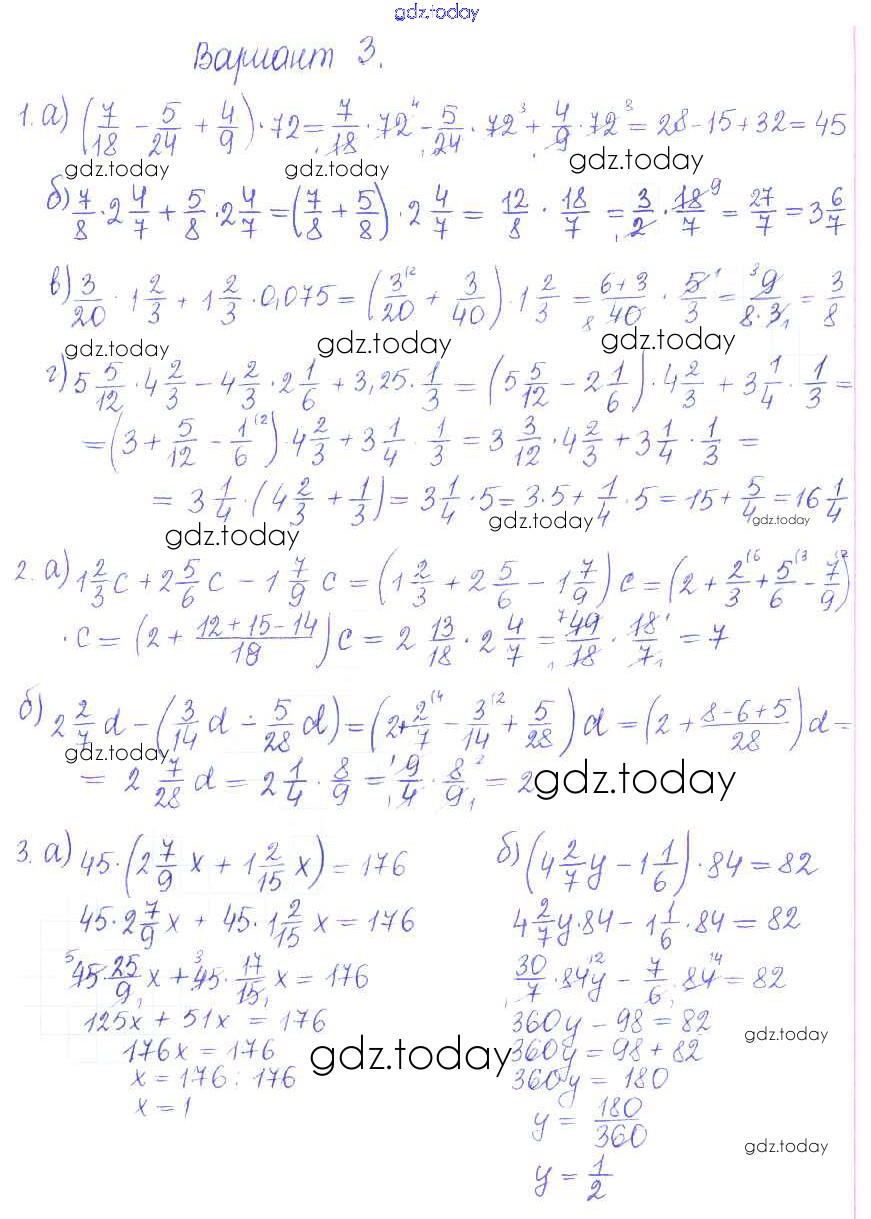 gdz.today
Вариант 3.
1. а) (7/18 - 5/24 + 4/9) · 72 = 7/18 · 72⁴ - 5/24 · 72³ + 4/9 · 72⁸ = 28 - 15 + 32 = 45
gdz.today gdz.today gdz.today
б) 7/8 · 2 4/7 + 5/8 · 2 4/7 = (7/8 + 5/8) · 2 4/7 = 12/8 · 18/7 = 3/2 · 18⁹/7 = 27/7 = 3 6/7
в) 3/20 · 1 2/3 + 1 2/3 · 0,075 = (3/20 + 3/40) · 1 2/3 = 6+3/40 · 5/3 = 9/8·3 = 3/8
gdz.today gdz.today gdz.today
г) 5 5/12 · 4 2/3 - 4 2/3 · 2 1/6 + 3,25 · 1/3 = (5 5/12 - 2 1/6) · 4 2/3 + 3 1/4 · 1/3 =
= (3 + 5/12 - 1/6) · 4 2/3 + 3 1/4 · 1/3 = 3 3/12 · 4 2/3 + 3 1/4 · 1/3 =
= 3 1/4 · (4 2/3 + 1/3) = 3 1/4 · 5 = 3·5 + 1/4 · 5 = 15 + 5/4 = 16 1/4
gdz.today gdz.today gdz.today
2. а) 1 2/3 c + 2 5/6 c - 1 7/9 c = (1 2/3 + 2 5/6 - 1 7/9) c = (2 + 2/3 + 5/6 - 7/9)
· c = (2 + 12+15-14/18) c = 2 13/18 · 2 4/7 = 49/18 · 18/7 = 7
б) 2 2/7 d - (3/14 d - 5/28 d) = (2 + 2/7 - 3/14 + 5/28) d = (2 + 8-6+5/28) d =
gdz.today
= 2 7/28 d = 2 1/4 · 8/9 = 9/4 · 8/9 = 2
gdz.today
3. а) 45 · (2 7/9 x + 1 2/15 x) = 176
45 · 2 7/9 x + 45 · 1 2/15 x = 176
45 · 25/9 x + 45 · 17/15 x = 176
125x + 51x = 176
176x = 176
x = 176 : 176
x = 1
gdz.today
б) (4 2/7 y - 1 1/6) · 84 = 82
4 2/7 y · 84 - 1 1/6 · 84 = 82
30/7 · 84y - 7/6 · 84 = 82
360y - 98 = 82
360y = 98 + 82
360y = 180
y = 180/360
y = 1/2
gdz.today
gdz.today